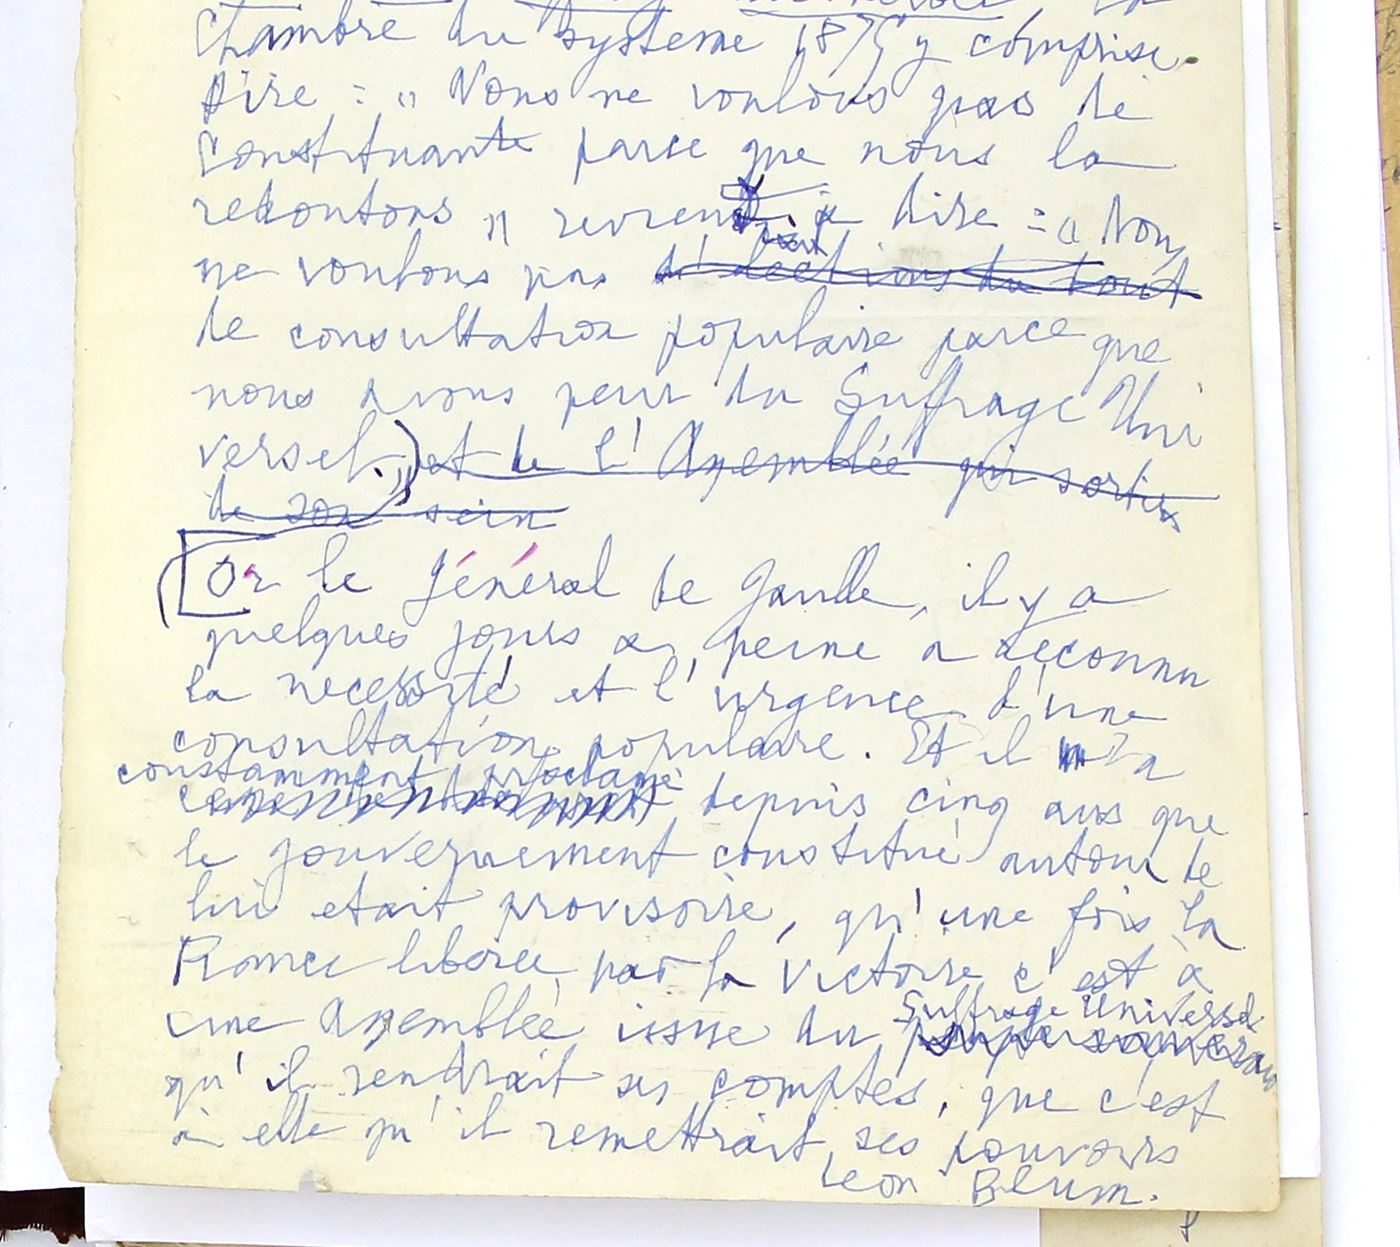 Chambre du système 1875 y comprise.
Dire : « Nous ne voulons pas de
Constituante parce que nous la
redoutons » reviendrait à dire : « Nous
ne voulons pas d'élections du tout
de consultation populaire parce que
nous avons peur du Suffrage Uni
versel. » et de l'Assemblée qui sortira
de son sein
Or le Général de Gaulle, il y a
quelques jours à peine a reconnu
la necessité et l'urgence d'une
consultation populaire. Et il a
constamment proclamé
depuis cinq ans que
le gouvernement constitué autour de
lui etait provisoire, qu'une fois la
France liberée par la Victoire c'est à
Suffrage Universel
une Assemblée issue du peuple souverain
qu'il rendrait ses comptes, que c'est
à elle qu'il remettrait ses pouvoirs
Leon Blum.